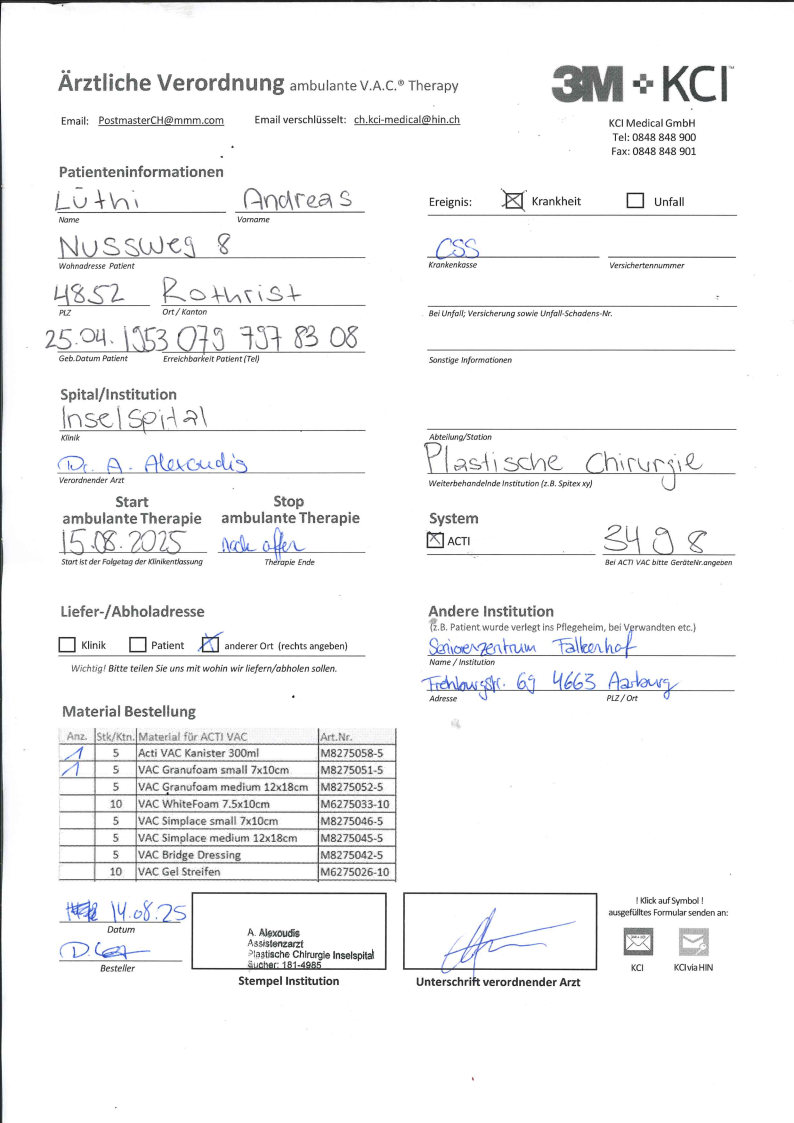 Ärztliche Verordnung ambulante V.A.C.® Therapy
3M KCI™
Email: PostmasterCH@mmm.com Email verschlüsselt: ch.kci-medical@hin.ch
KCI Medical GmbH
Tel: 0848 848 900
Fax: 0848 848 901
Patienteninformationen
Lüthi Andreas
Name Vorname
Ereignis: Krankheit Unfall
Nussweg 8
Wohnadresse Patient
CSS
Krankenkasse Versichertennummer
4852 Rothrist
PLZ Ort / Kanton
Bei Unfall; Versicherung sowie Unfall-Schadens-Nr.
25.04.1953 079 797 83 08
Geb.Datum Patient Erreichbarkeit Patient (Tel)
Sonstige Informationen
Spital/Institution
Inselspital
Klinik
Abteilung/Station
Dr. A. Alexoudis
Verordnender Arzt
Plastische Chirurgie
Weiterbehandelnde Institution (z.B. Spitex xy)
Start ambulante Therapie
Stop ambulante Therapie
15.08.2025 noch offen
Start ist der Folgetag der Klinikentlassung Therapie Ende
System
ACTI 3498
Bei ACTI VAC bitte GeräteNr.angeben
Liefer-/Abholadresse
Klinik Patient anderer Ort (rechts angeben)
Wichtig! Bitte teilen Sie uns mit wohin wir liefern/abholen sollen.
Andere Institution
(z.B. Patient wurde verlegt ins Pflegeheim, bei Verwandten etc.)
Seniorenzentrum Falkenhof
Name / Institution
Frohburgstr. 69 4663 Aarburg
Adresse PLZ / Ort
Material Bestellung
Anz. Stk/Ktn. Material für ACTI VAC Art.Nr.
1 5 Acti VAC Kanister 300ml M8275058-5
1 5 VAC Granufoam small 7x10cm M8275051-5
5 VAC Granufoam medium 12x18cm M8275052-5
10 VAC WhiteFoam 7.5x10cm M6275033-10
5 VAC Simplace small 7x10cm M8275046-5
5 VAC Simplace medium 12x18cm M8275045-5
5 VAC Bridge Dressing M8275042-5
10 VAC Gel Streifen M6275026-10
14.08.25
Datum
Besteller
A. Alexoudis
Assistenzarzt
Plastische Chirurgie Inselspital
Sucher: 181-4985
Stempel Institution
Unterschrift verordnender Arzt
! Klick auf Symbol !
ausgefülltes Formular senden an:
KCI KCI via HIN